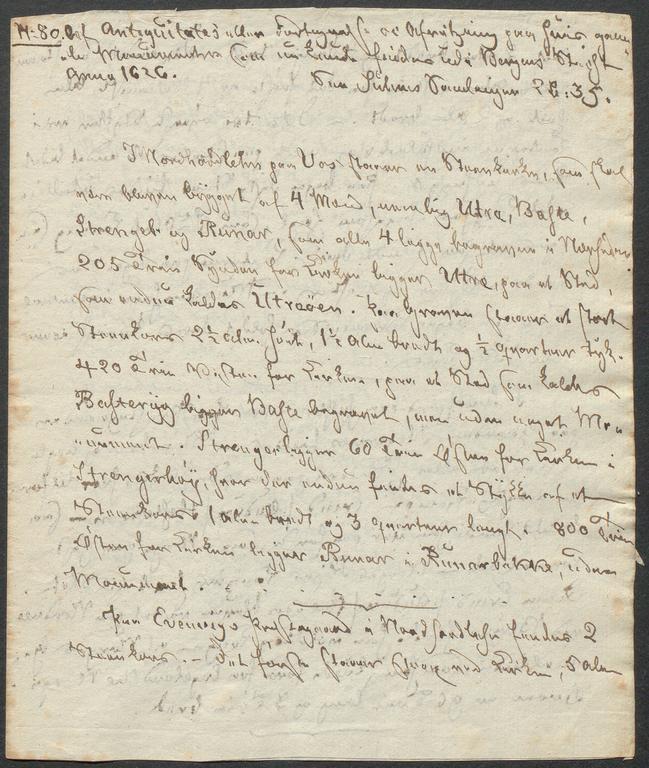 N. 80. Antiquitates eller Fortegnelse og Afritzning paa huis gam-
le Monumenter som nu kunde findes udi Bergens Stigt
Anno 1626. See Suhms Samlinger 2 B: 35.
I Nordhordlehn paa Vos staaer en Steenkirke, som skal
være bleven bygget af 4 Mænd, nemlig Uttre, Baste,
Strenger og Runar, som alle 4 ligge begraven i
205 Trin Synden for Kirken ligger Uttre, paa et Sted,
som endnu kaldes Utreøen. Paa Graven staaer et stort
Steenkors 2½ alen høit, 1½ Alen bredt og ½ quarteer tyk.
420 Trin Vesten for Kirken, paa et Sted som kaldes
Basterijg ligger Baste begravet, men uden noget Mo-
nument. Strenger ligger 60 Trin Østen for Kirken i
Strengerhøy, hvor der endnu findes et Stykke af et
Steenkors 1 Alen bredt og 3 quarteer langt. 800 Trin
Østen for Kirken ligger Runar i Runarbakke, uden
Monument.
Paa Evenvigs Prestegaard i Nordhordlehn findes 2
Steenkors. - Det første staaer strax ved Kirken, 5 alen